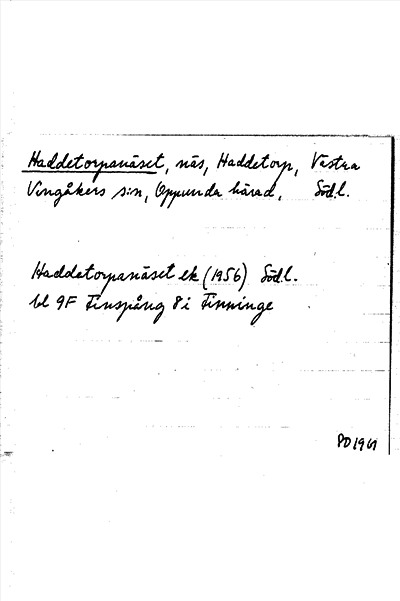 Haddetorpanäset, näs, Haddetorp, Västra
Vingåkers s:n, Oppunda härad, Södl.
Haddetorpanäset ek (1956) Södl.
bl 9F Finspång 8 i Finninge
PD 1961